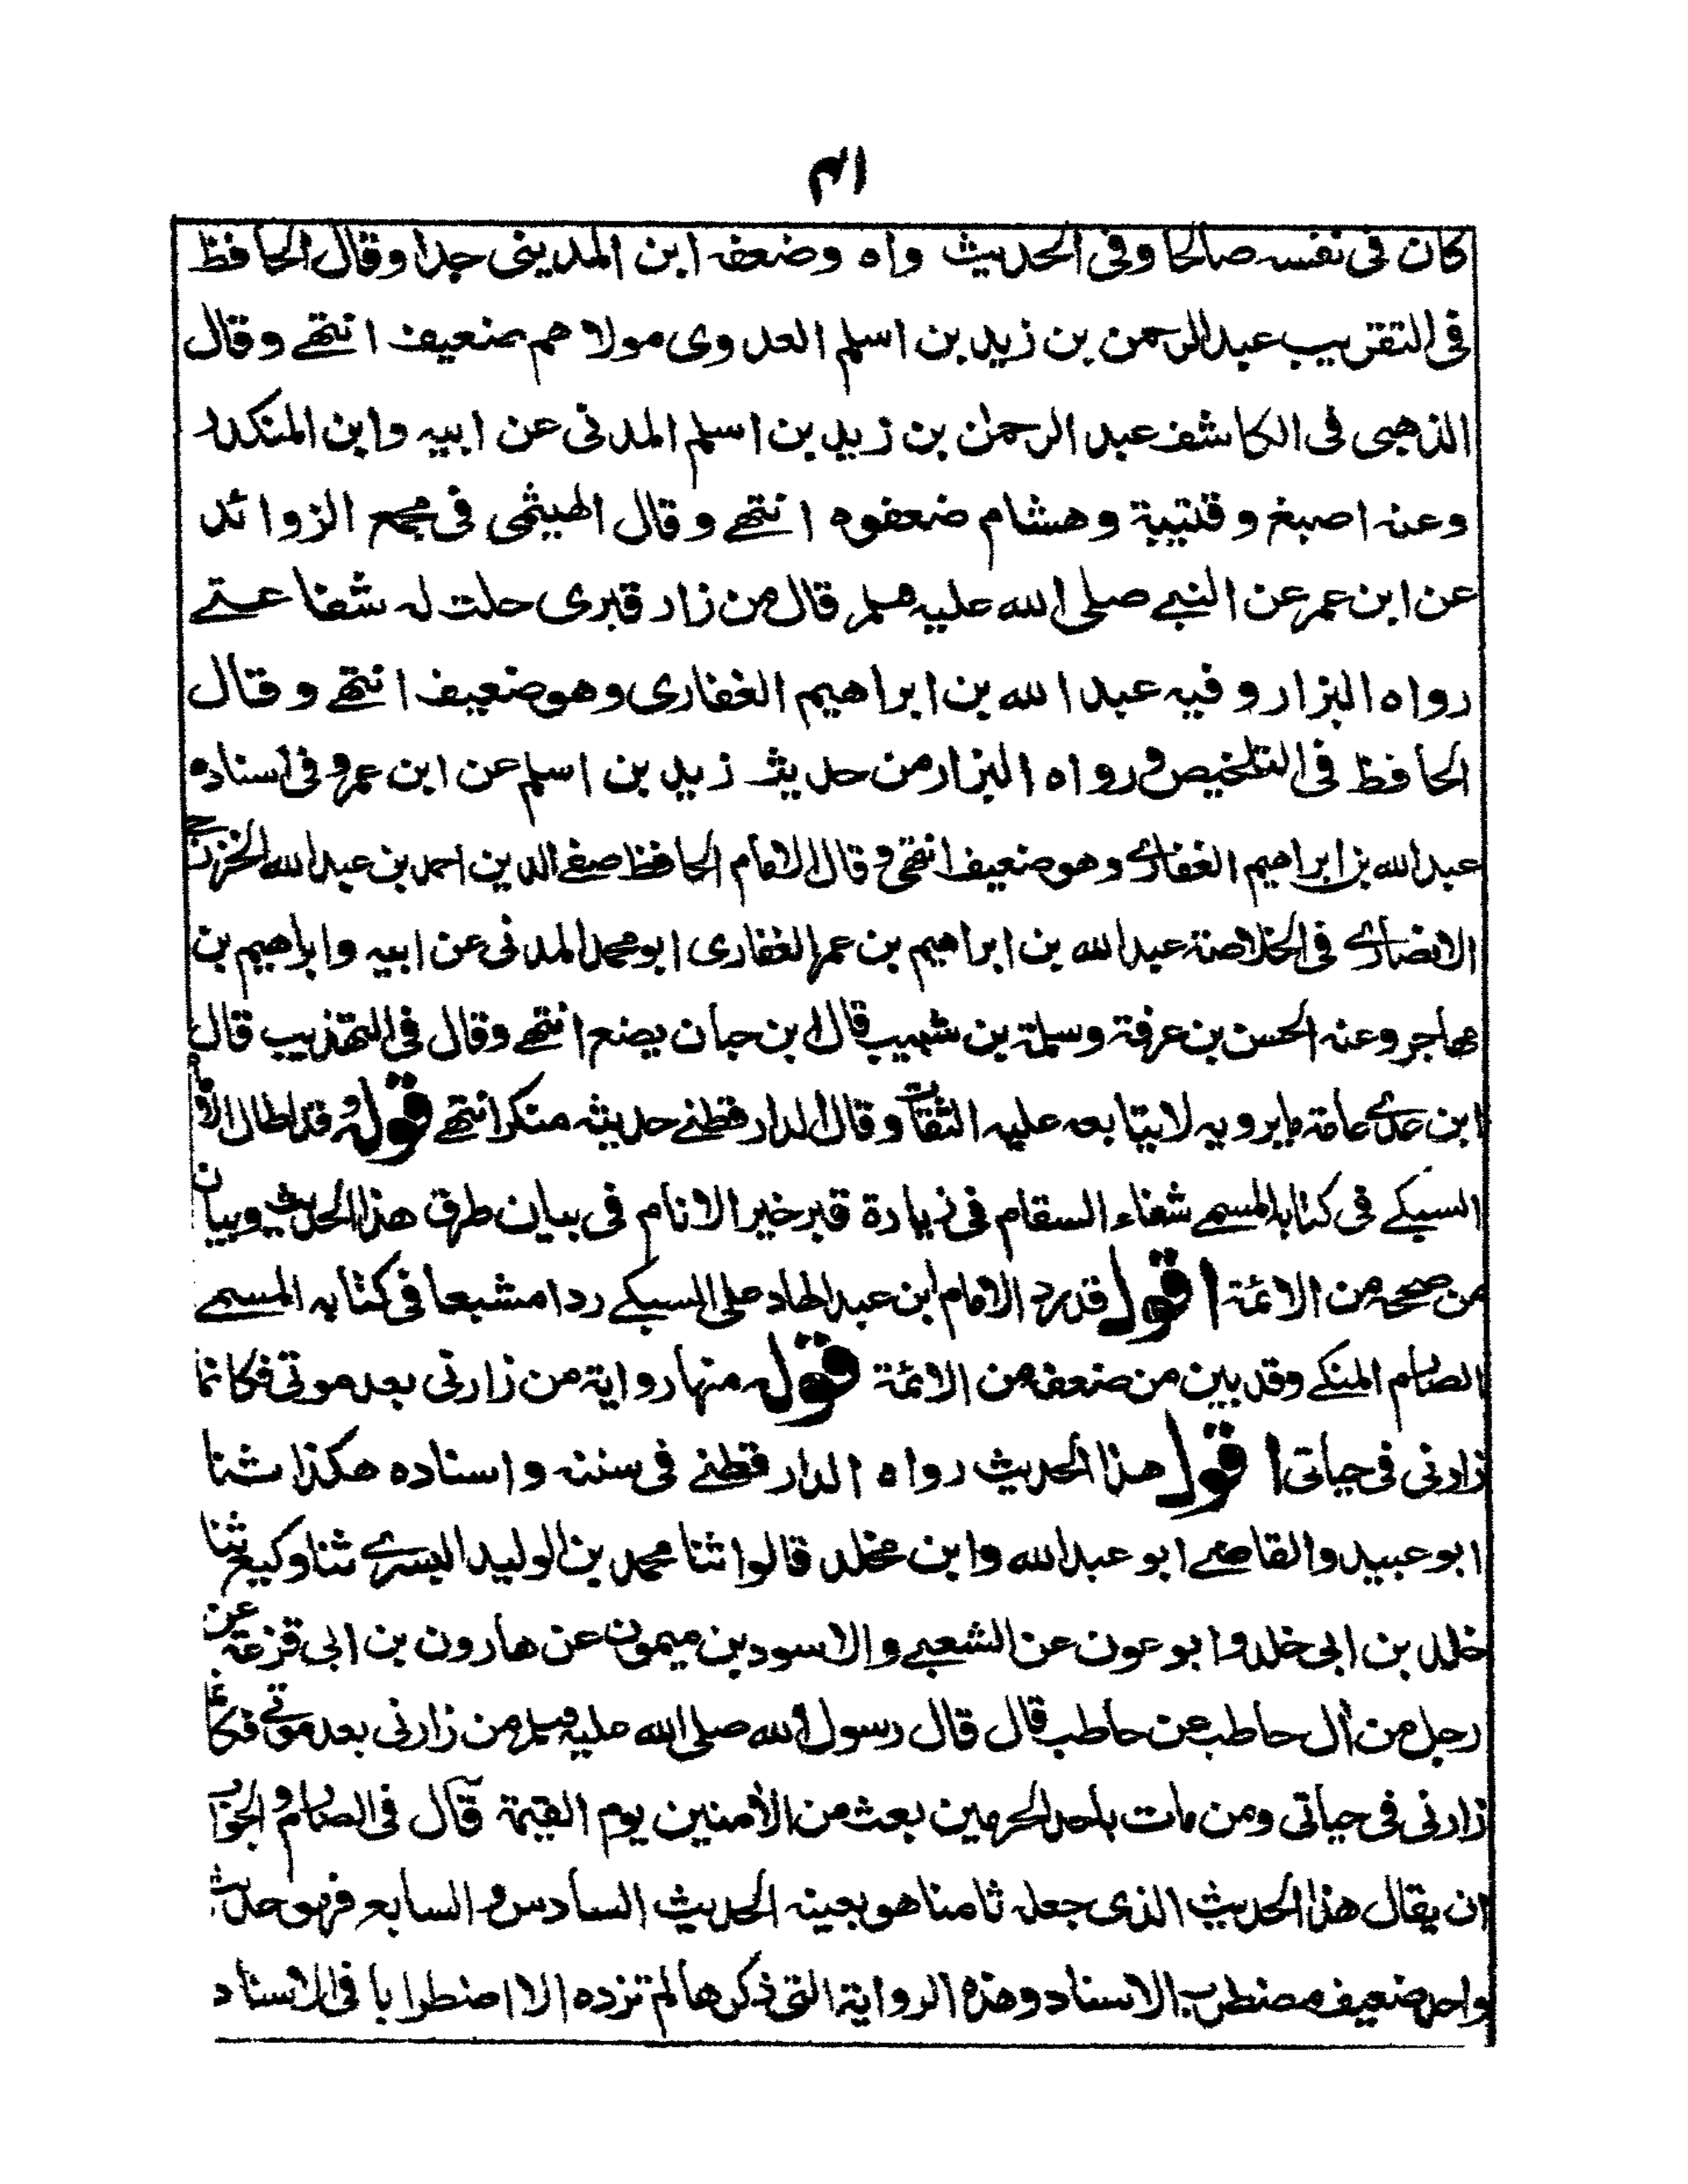 ا۴
كان فى نفسه صالحا وفى الحديث واه وضعفه ابن المدينى جدا وقال الحافظ
فى التقريب عبد الرحمن بن زيد بن اسلم العدوى مولاهم ضعيف انتهے وقال
الذهبى فى الكاشف عبد الرحمن بن زيد بن اسلم المدنى عن ابيه وابن المنكدر
وعنه اصبغ وقتيبة وهشام ضعفوه انتهے وقال الهيثمى فى مجمع الزوائد
عن ابن عمر عن النبے صلى الله عليه وسلم قال من زار قبرى حلت له شفاعتے
رواه البزار وفيه عبد الله بن ابراهيم الغفارى وهو ضعيف انتهے وقال
الحافظ فى التلخيص ورواه البزار من حديث زيد بن اسلم عن ابن عمر وفى اسناده
عبد الله بن ابراهيم الغفارے وهو ضعيف انتهى وقال الامام الحافظ صفے الدين احمد بن عبد الله الخزرجے
الانصارے فى الخلاصة عبد الله بن ابراهيم بن عمر الغفارى ابو محمد المدنى عن ابيه وابراهيم بن
مهاجر وعنه الحسن بن عرفة وسلمة بن شبيب قال ابن حبان يضع انتهے وقال فى التهذيب قال
ابن عدے عامة ما يرويه لا يتابعه عليه الثقات وقال الدار قطنے حديثه منكر انتهے قوله وقد اطال الامام
السبكے فى كتابه المسمے شفاء السقام فى زيارة قبر خير الانام فى بيان طرق هذا الحديث وبيان
من صححه من الائمة اقول قد رد الامام ابن عبد الهاد على السبكے ردا مشبعا فى كتابه المسمے
الصارم المنكے وقد بين من ضعفه من الائمة قوله منها رواية من زارنى بعد موتى فكانما
زارنى فى حياتى اقول هذا الحديث رواه الدار قطنے فى سننه واسناده هكذا ثنا
ابو عبيد والقاضے ابو عبد الله وابن مخلد قالوا ثنا محمد بن الوليد البسرے ثنا وكيع ثنا
خلد بن ابى خلد وابو عون عن الشعبے والاسود بن ميمون عن هارون بن ابى قزعة عن
رجل من أل حاطب عن حاطب قال قال رسول الله صلى الله عليه وسلم من زارنى بعد موتے فكانما
زارنى فى حياتى ومن مات باحد الحرمين بعث من الأمنين يوم القيمة قال فى الصارم والجواب
ان يقال هذا الحديث الذى جعله ثامنا هو بعينه الحديث السادس والسابع فهو حديث
واحد ضعيف مضطرب الاسناد وهذه الرواية التى ذكرها لم تزده الا اضطرابا فى الاسناد